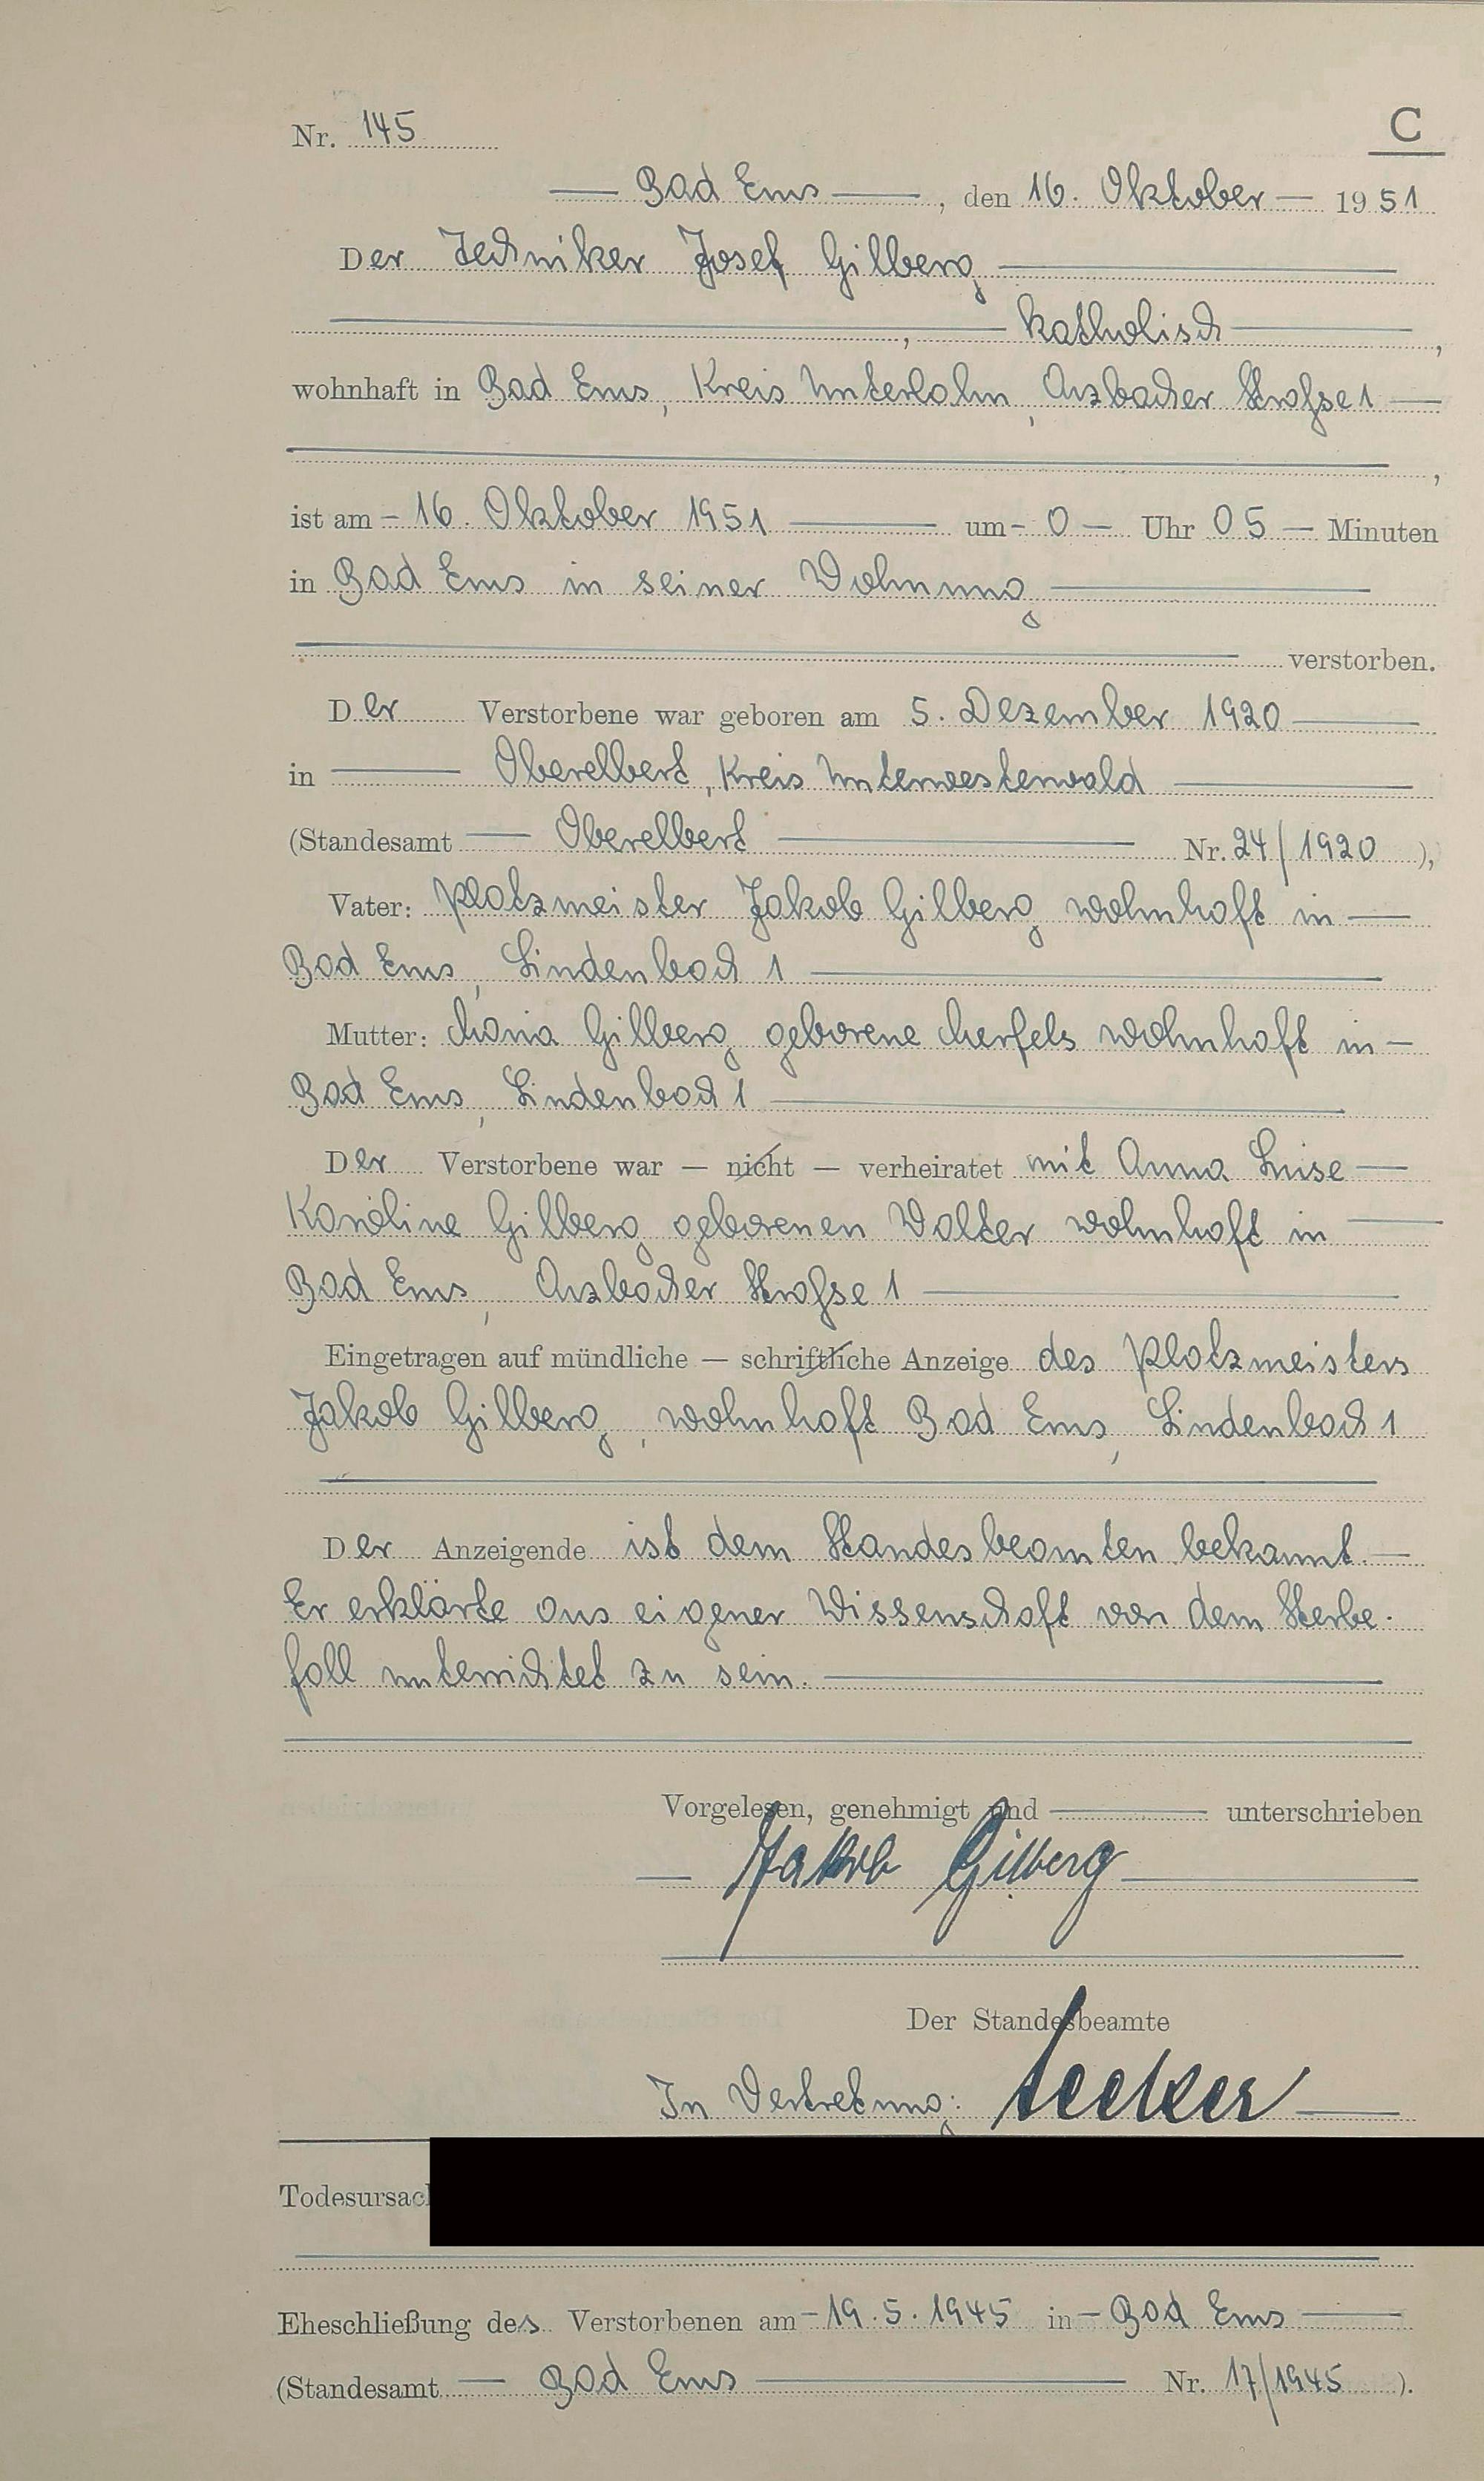 Nr. 145
C
Bad Ems, den 16. Oktober 1951
Der Techniker Josef Gilberg
, katholisch,
wohnhaft in Bad Ems, Kreis Unterlahn, Arzbacher Strasse 1
,
ist am 16. Oktober 1951 um 0 Uhr 05 Minuten
in Bad Ems in seiner Wohnung
verstorben.
Der Verstorbene war geboren am 5. Dezember 1920
in Oberelbert, Kreis Unterwesterwald
(Standesamt Oberelbert Nr. 24/1920),
Vater: Platzmeister Jakob Gilberg wohnhaft in
Bad Ems, Lindenbach 1
Mutter: Maria Gilberg geborene Merfels wohnhaft in
Bad Ems, Lindenbach 1
Der Verstorbene war — nicht — verheiratet mit Anna Luise
Karoline Gilberg geborenen Walter wohnhaft in
Bad Ems, Arzbacher Strasse 1
Eingetragen auf mündliche — schriftliche Anzeige des Platzmeisters
Jakob Gilberg, wohnhaft Bad Ems, Lindenbach 1
Der Anzeigende ist dem Standesbeamten bekannt.
Er erklärte aus eigener Wissenschaft von dem Sterbe-
fall unterrichtet zu sein.
Vorgelesen, genehmigt und unterschrieben
Jakob Gilberg
Der Standesbeamte
In Vertretung:
Todesursac
Eheschließung des Verstorbenen am 19.5.1945 in Bad Ems
(Standesamt Bad Ems Nr. 17/1945).